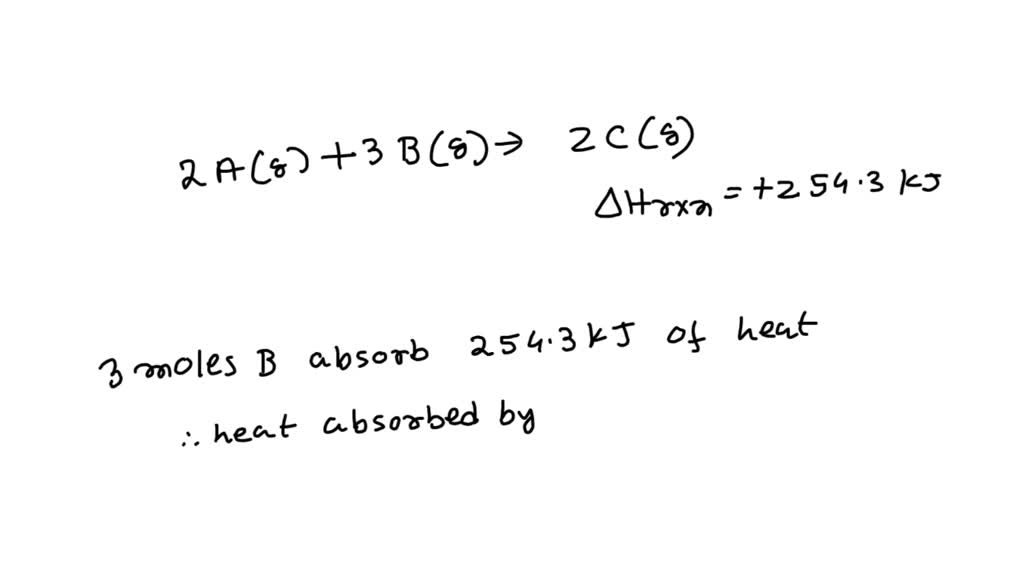 2A(g) + 3B(g) → 2C(g)
ΔHrxn = +254.3 kJ
3 moles B absorb 254.3 kJ of heat
∴ heat absorbed by